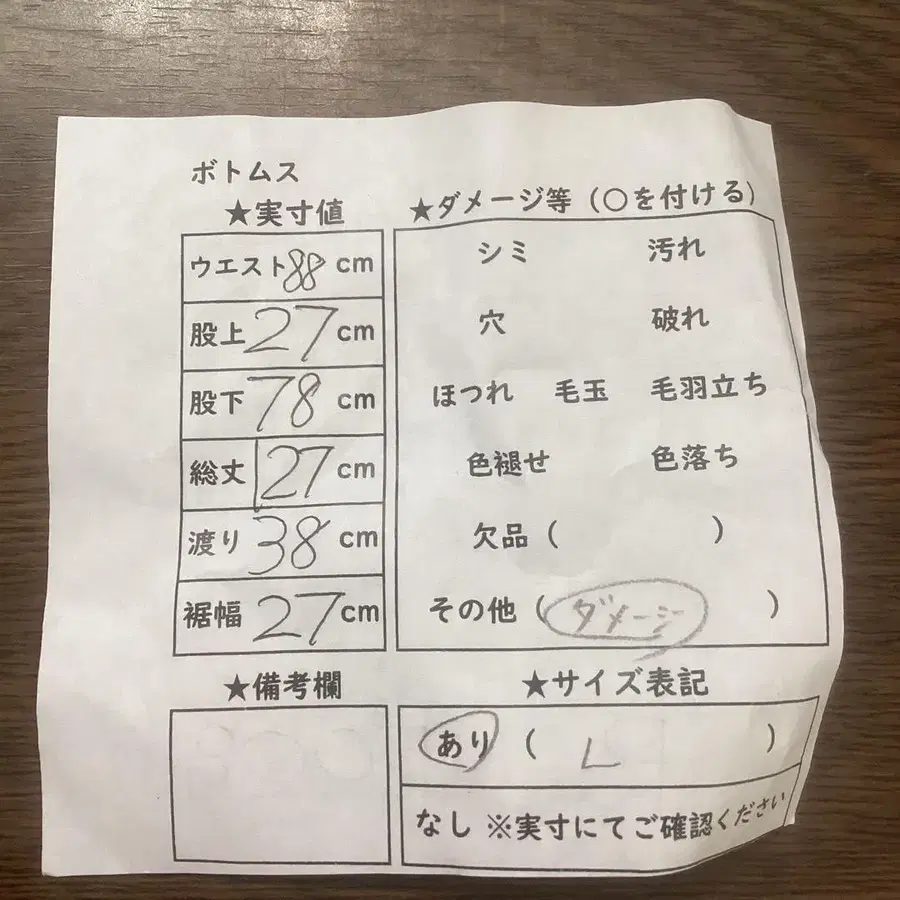 ボトムス
★実寸値
ウエスト88cm
股上27cm
股下78cm
総丈27cm
渡り38cm
裾幅27cm
★ダメージ等(〇を付ける)
シミ 汚れ
穴 破れ
ほつれ 毛玉 毛羽立ち
色褪せ 色落ち
欠品( )
その他(ダメージ)
★備考欄
★サイズ表記
あり( L )
なし ※実寸にてご確認ください